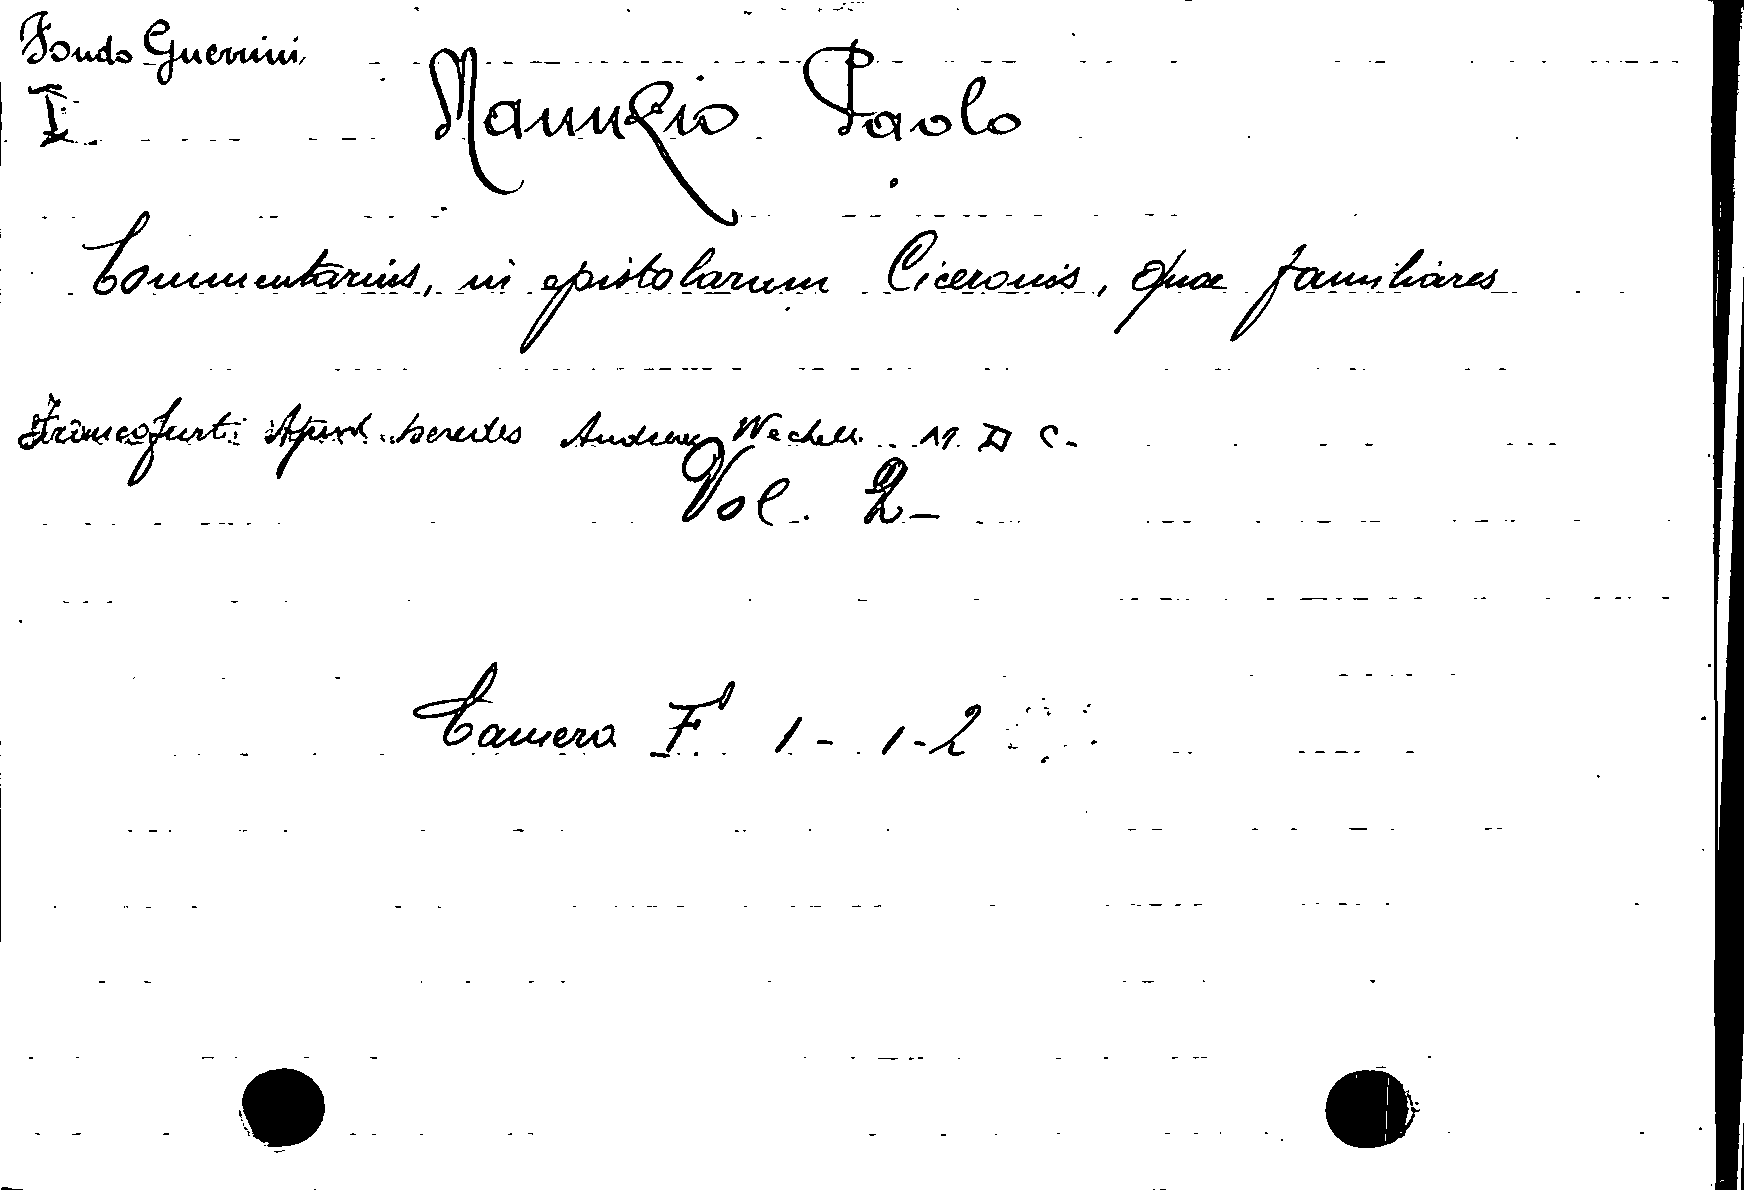 Fondo Guerrini
I
Manuzio Paolo
Commentarius, in epistolarum Ciceronis, quae familiares
Francofurti Apud heredes Andreae Wecheli M D C.
Vol. 2-
Camera F 1 - 1-2